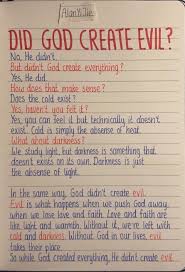 Alan W. Jie
DID GOD CREATE EVIL?
No, He didn't.
But didn't God create everything?
Yes, He did.
How does that make sense?
Does the cold exist?
Yes, haven't you felt it?
Yes, you can feel it but technically it doesn't
exist. Cold is simply the absence of heat.
What about darkness?
We study light, but darkness is something that
doesn't exists on its own. Darkness is just
the absense of light.
In the same way, God didn't create evil.
Evil is what happens when we push God away,
when we lose love and faith. Love and faith are
like light and warmth. Without it, we're left with
cold and darkness. Without God in our lives, evil
takes their place.
So while God created everything, He didn't create evil.